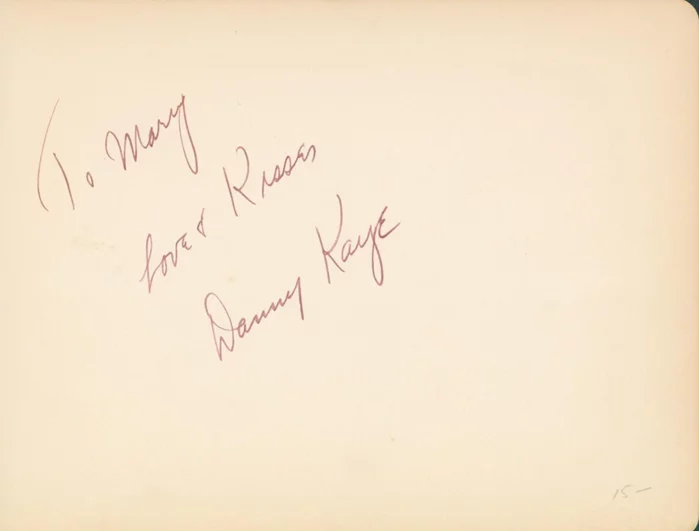 To Mary
Love & Kisses
Danny Kaye
15-